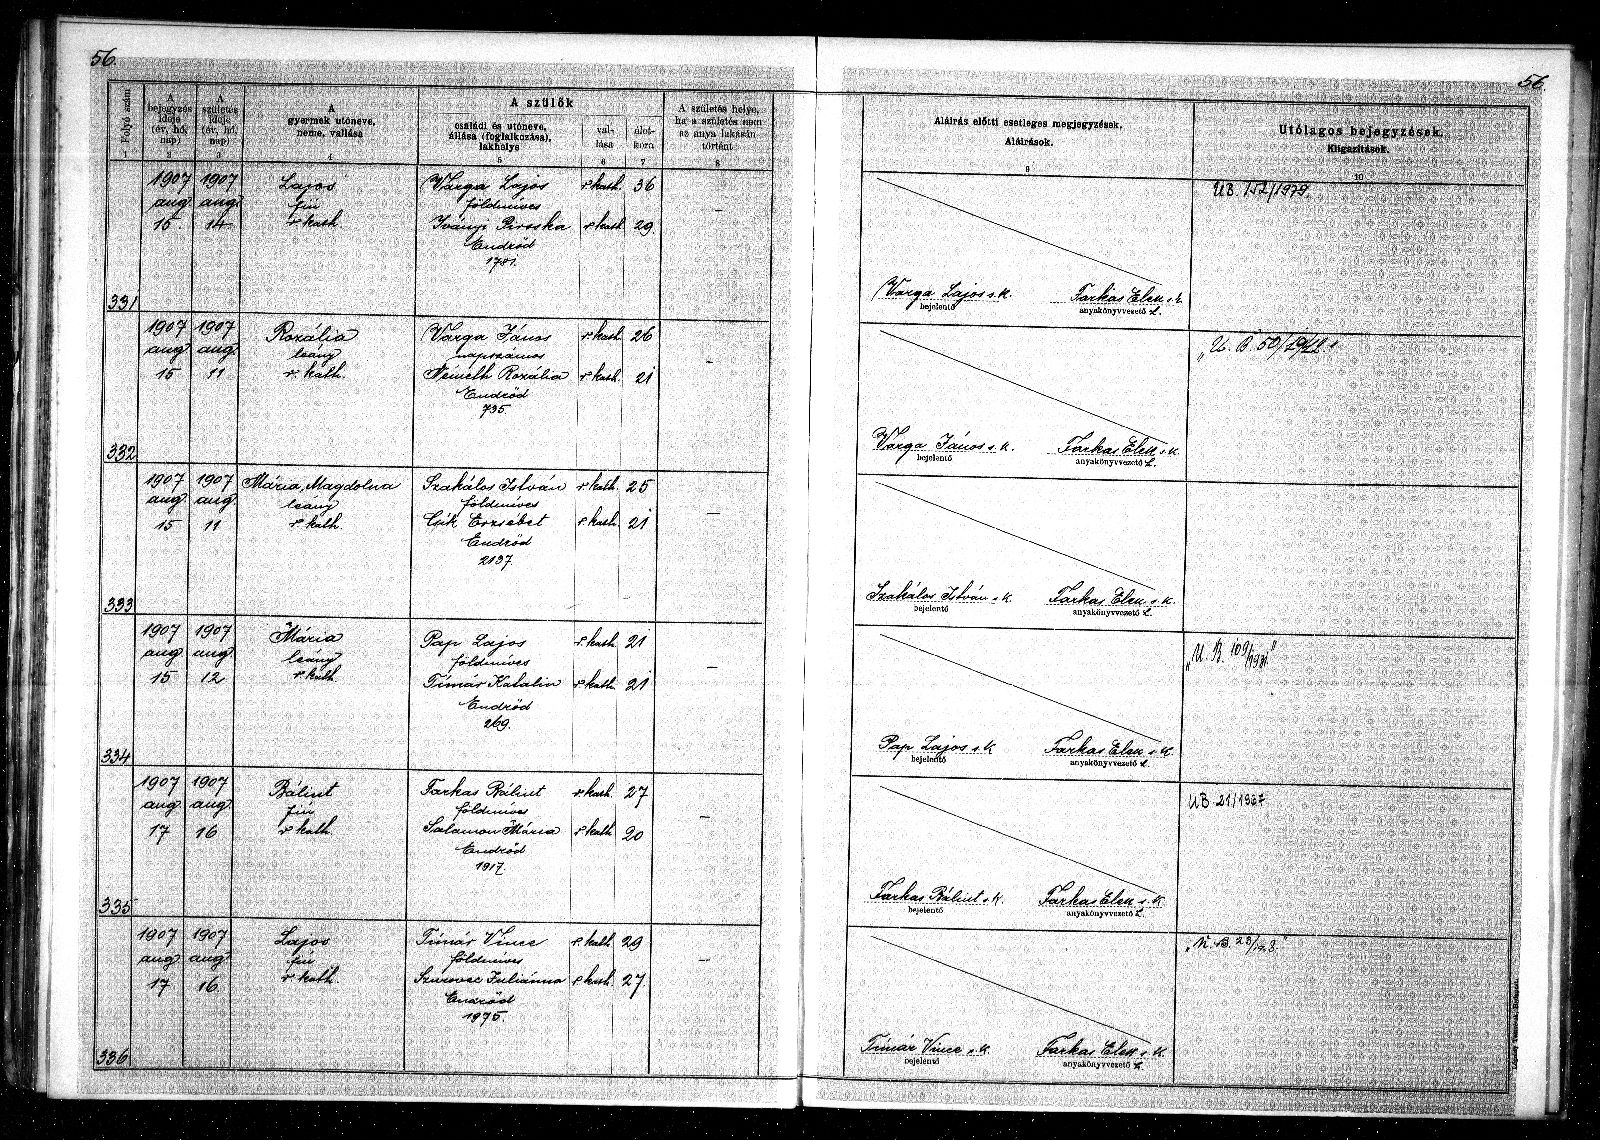 56.
56.
Folyó szám
A bejegyzés ideje (év, hó, nap)
A születés ideje (év, hó, nap)
A gyermek utóneve, neme, vallása
A szülők
családi és utóneve, állása (foglalkozása), lakhelye
vallása
életkora
A születés helye, ha a születés nem az anya lakásán történt
Aláírás előtti esetleges megjegyzések.
Aláírások.
Utólagos bejegyzések.
Kiigazítások.
1 2 3 4 5 6 7 8 9 10
1907 1907 Lajos Varga Lajos r. kath. 36
aug. aug. fiú földmíves –
15. 14 r. kath. Iványi Piroska r. kath. 29.
Endrőd
1781.
331
UB. 152/1979.
Varga Lajos s.k. Farkas Elek s.k.
bejelentő anyakönyvvezető h.
1907 1907 Rozália Varga János r. kath. 26
aug. aug. leány napszámos –
15 11 r. kath. Németh Rozália r. kath. 21
Endrőd
735.
332
„U. B. 50/
Varga János s.k. Farkas Elek s.k.
bejelentő anyakönyvvezető h.
1907 1907 Mária, Magdolna Szakálos István r. kath. 25
aug. aug. leány földmíves –
15 11 r. kath. Csik Erzsébet r. kath. 21
Endrőd
2137.
333
Szakálos István s.k. Farkas Elek s.k.
bejelentő anyakönyvvezető h.
1907 1907 Mária Pap Lajos r. kath. 21
aug. aug. leány földmíves –
15 12 r. kath. Tímár Katalin r. kath. 21
Endrőd
269.
334
„U. B. 109/1931."
Pap Lajos s.k. Farkas Elek s.k.
bejelentő anyakönyvvezető h.
1907 1907 Bálint Farkas Bálint r. kath. 27
aug. aug. fiú földmíves –
17 16 r. kath. Salamon Mária r. kath. 20
Endrőd
1917.
335
UB 21/1967
Farkas Bálint s.k. Farkas Elek s.k.
bejelentő anyakönyvvezető h.
1907 1907 Lajos Tímár Vince r. kath. 29
aug. aug. fiú földmíves –
17 16. r. kath. Szurovec Juliánna r. kath. 27.
Endrőd
1975.
336
„U. B. 23/
Tímár Vince s.k. Farkas Elek s.k.
bejelentő anyakönyvvezető h.